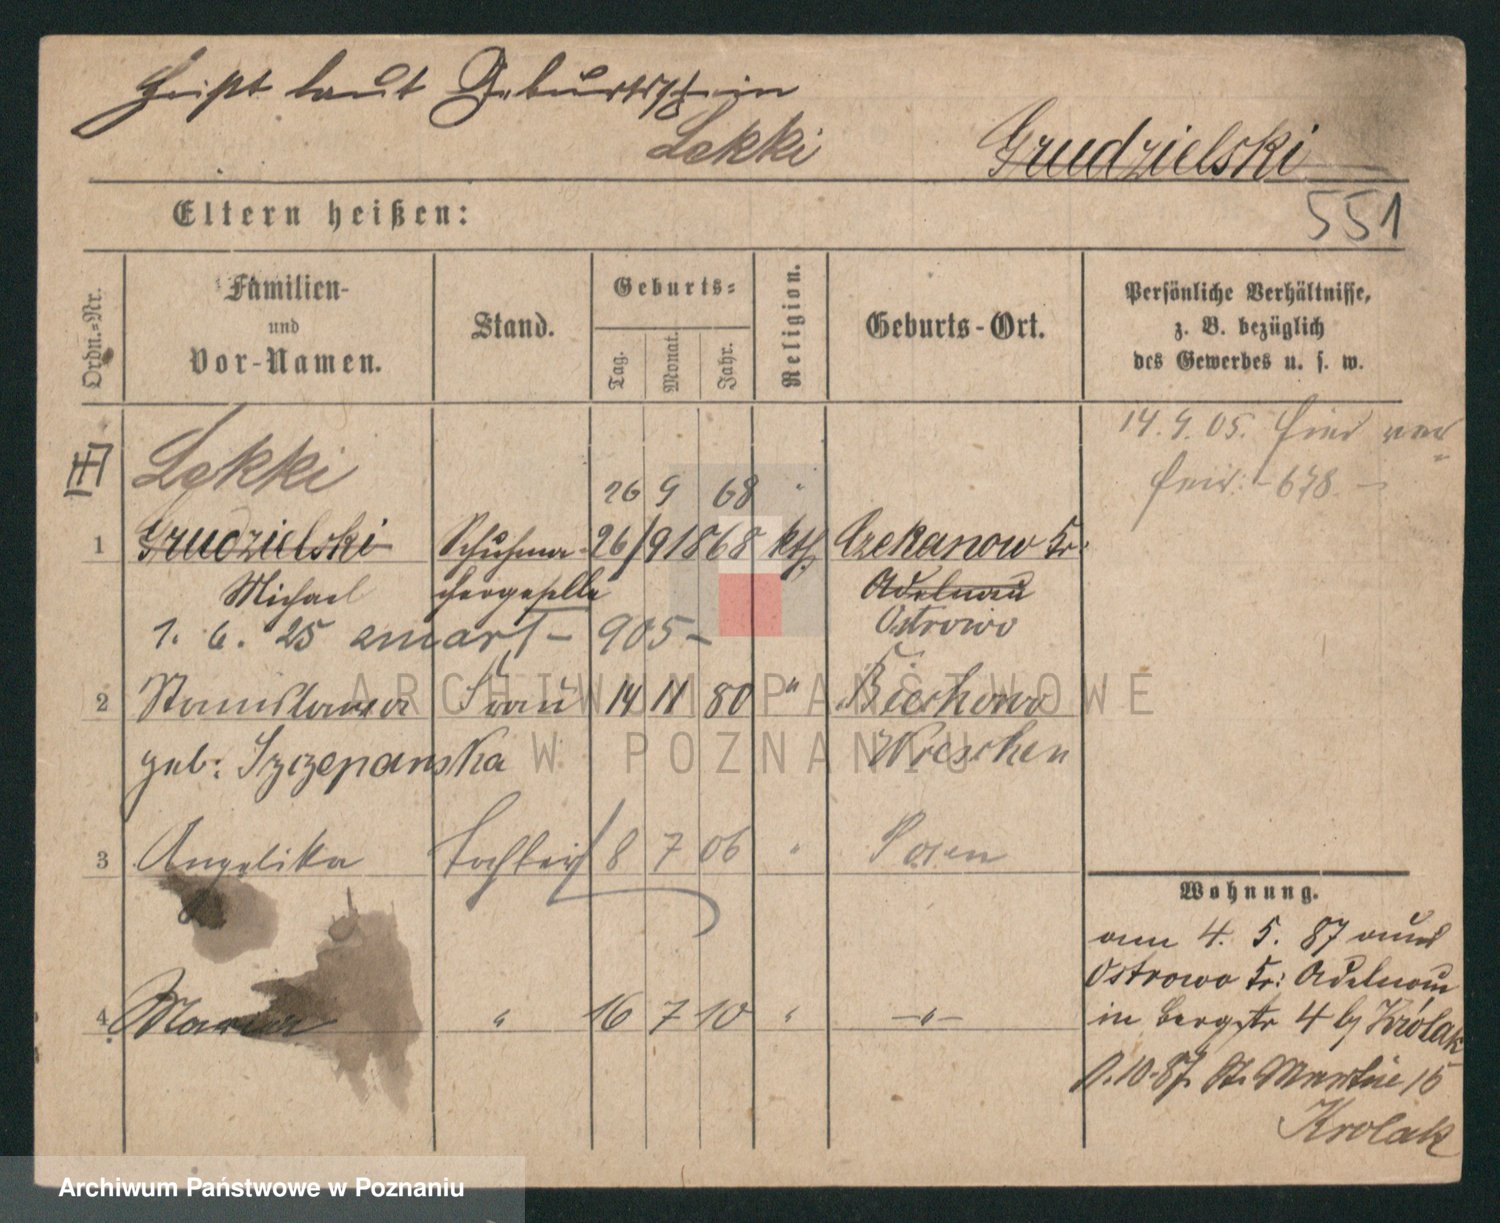 Heißt laut Geburtsschein
Lekki Grudzielski
551
Eltern heißen:
Ordn.=Nr. Familien- und Vor-Namen. Stand. Geburts= Tag. Monat. Jahr. Religion. Geburts-Ort. Persönliche Verhältnisse, z. B. bezüglich des Gewerbes u. s. w.
14. 9. 05.
Lekki 26 9 68 "
678. -
1 Grudzielski Schuhma- 26/9 1868 kth. Czekanow Kr:
Michael chergeselle Adelnau
1. 6. 25 zmarł - 905 - Ostrowo
2 Stanislawa Frau 14 11 80 " Biechowo
geb: Szczepanska Wreschen
3 Angelika Tochter 8 7 06 " Posen
Wohnung.
am 4. 5. 87 aus
Ostrowo Kr: Adelnau
4 Maria " 16 7 10 " -"-
in Bergstr 4 bj Królak
1.10.87. St. Martin 15
Krolak
ARCHIWUM PAŃSTWOWE
W POZNANIU
Archiwum Państwowe w Poznaniu